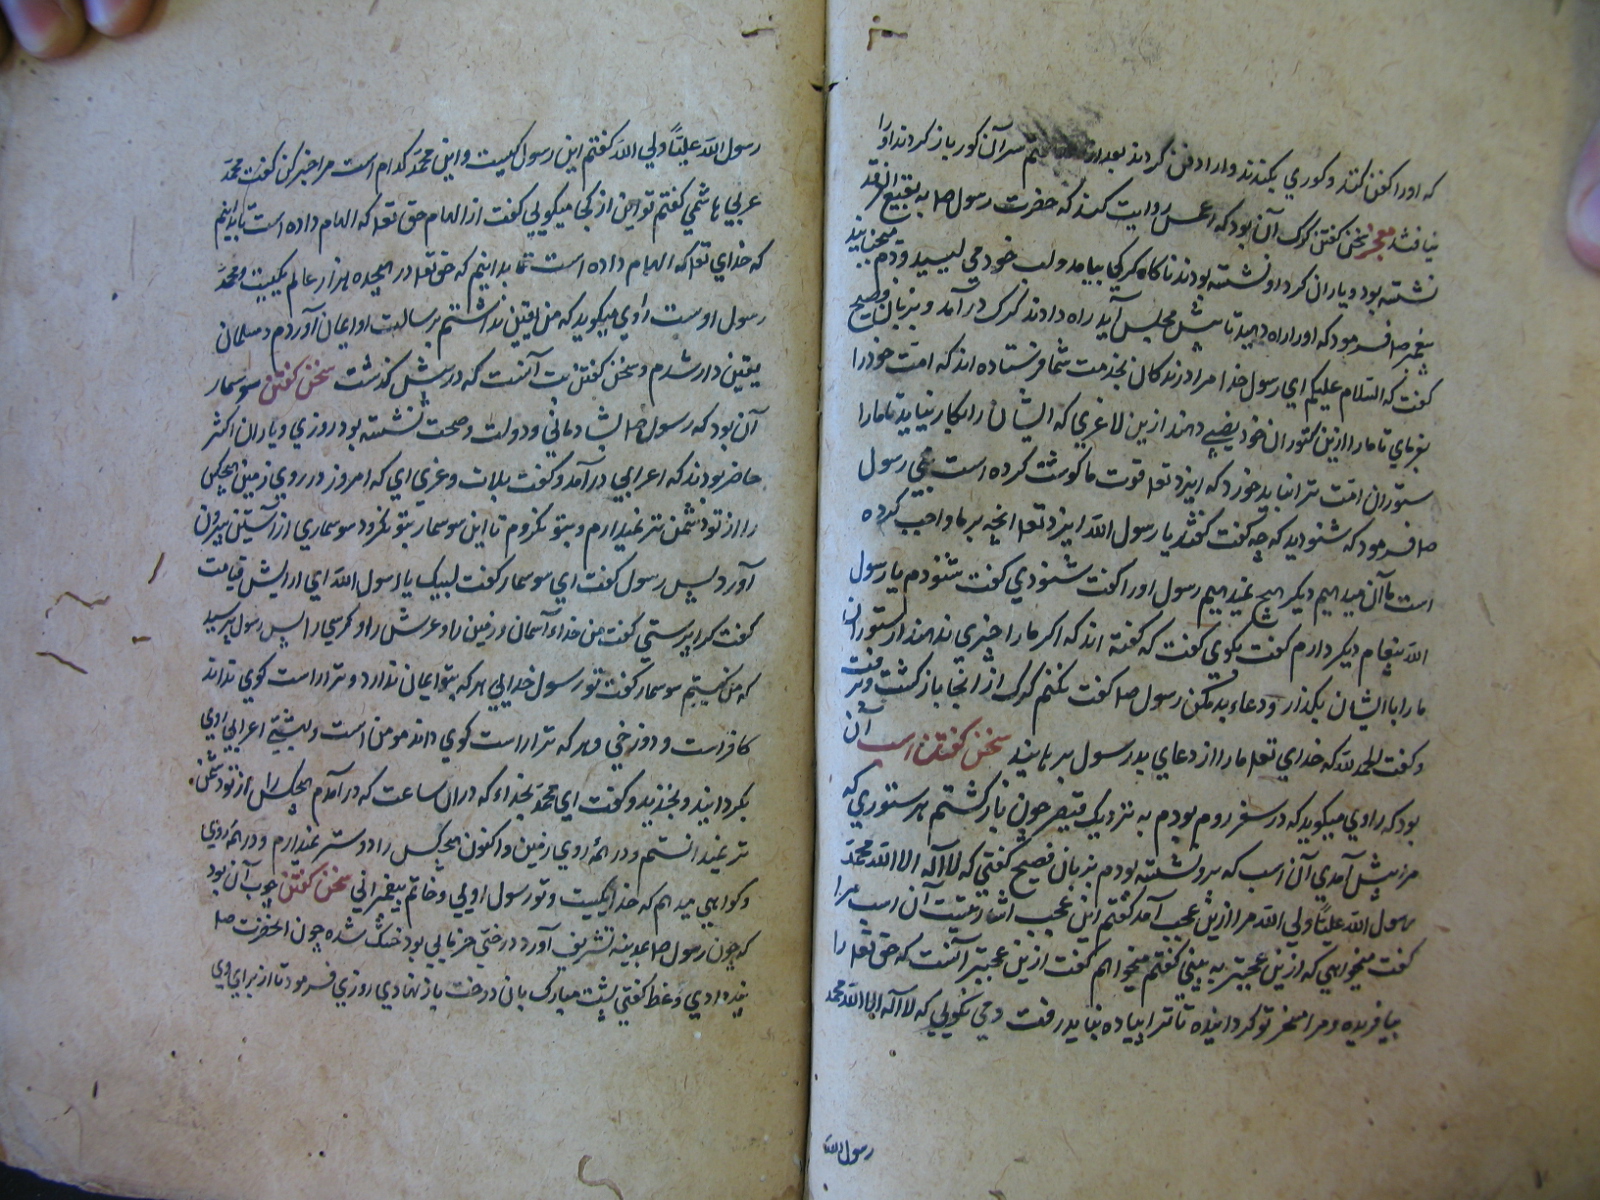 که اورا کفن کنند و کوری بکندند و ارا دفن کردند بعد از سر آن کور باز کردند اورا
نیافتند معجز سخن کفتن کرک آن بود که روایت کند که حضرت رسول صلا به بقیع
نشسته بود و یاران کرد او نشسته بودند ناکاه کرکی بیامد و لب خود می لیسید و دم میجنبانید
پیغمبر صلا فرمود که اورا راه دهید تا پیش مجلس آید راه دادند کرک درآمد و بزبان فصیح
کفت که السلام علیکم ای رسول خدا مرا درندکان بخدمت شما فرستاده اند که امت خود را
بفرمای تا مارا ازین ستوران خود نصیبی دهند ازین لاغری که ایشان را بکار نیاید تا مارا
ستوران امت ترا نباید خورد که ایزد تعا قوت ما کوشت کرده است رسول
صلا فرمود که شنودید که چه کفت کفتند یا رسول الله ایزد تعا آنچه بر ما واجب کرده
است ما آن میدهیم دیکر هیچ نمیدهیم رسول اورا کفت شنودی کفت شنودم یا رسول
الله پیغام دیکر دارم کفت بکوی کفت که کفته اند که اکر مارا چیزی ندهند از ستوران
مارا با ایشان بکذار و دعاء بد مکن رسول صلا کفت نکنم کرک از آنجا باز کشت و برفت
و کفت الحمد لله که خدای تعا مارا از دعای بد رسول برهانید سخن کفتن اسب آن
بود که راوی میکوید که در سفر روم بودم به نزدیک قیصر چون باز کشتم هر ستوری که
مرا پیش آمدی آن اسب که برو نشسته بودم بزبان فصیح کفتی که لا اله الا الله محمد
رسول الله علیا ولی الله مرا ازیش عجب آمد کفتم این عجب آن اسب مرا
کفت میخواهی که ازین عجبتر به بینی کفتم میخواهم کفت ازین عجبتر آنست که حق تعا را
بیافریده و مرا مسخر تو کردانیده تا ترا پیاده نباید رفت و می نکویی که لا اله الا الله محمد
رسول الله
رسول الله علیا ولی الله کفتم این رسول کیست و این محمد کدام است مرا خبر کن کفت محمد
عربی هاشمی کفتم تو این از کجا میکویی کفت از الهام حق تعا که الهام داده است تا بدانیم
که خدای تعا که الهام داده است تا بدانیم که حق تعا در هیجده هزار عالم یکیست و محمد
رسول اوست راوی میکوید که من یقین نداشتم برسالت او ایمان آوردم و مسلمان
یقین دار شدم و سخن کفتن بت آنست که در پیش کذشت سخن کفتن سوسمار
آن بود که رسول صلا بشادمانی و دولت و صحت نشسته بود روزی و یاران اکثر
حاضر بودند که اعرابی درآمد و کفت بلات و عزی ای که امروز در روی زمین هیچکس
را از تو دشمن تر نمیدارم و بتو نکروم تا این سوسمار بتو نکرود سوسماری از آستین بیرون
آورد پس رسول کفت ای سوسمار کفت لبیک یا رسول الله ای ارایش قیامت
کفت کرا پرستی کفت من خداء آسمان و زمین را و عرش را و کرسی را پس رسول پرسید
که من کیستم سوسمار کفت تو رسول خدایی هر که بتو ایمان ندارد و ترا راست کوی نداند
کافر است و دوزخی و هر که ترا راست کوی داند مومن است و بهشتی اعرابی روی
بکردانید و بخندید و کفت ای محمد بخداء که در آن ساعت که در آمدم هیچکس را از تو دشمن
تر نمیدانستم و در همه روی زمین و اکنون هیچکس را دوستر نمیدارم و در همه روی
و کواهی میدهم که خدا یکیست و تو رسول اویی و خاتم پیغمبرانی سخن کفتن چوب آن بود
که چون رسول صلا بمدینه تشریف آورد درختی خرمایی بود خشک شده چون آنحضرت صلا
وعظ کفتی پشت مبارک بان درخت باز نهادی روزی فرمود تا از برای وی